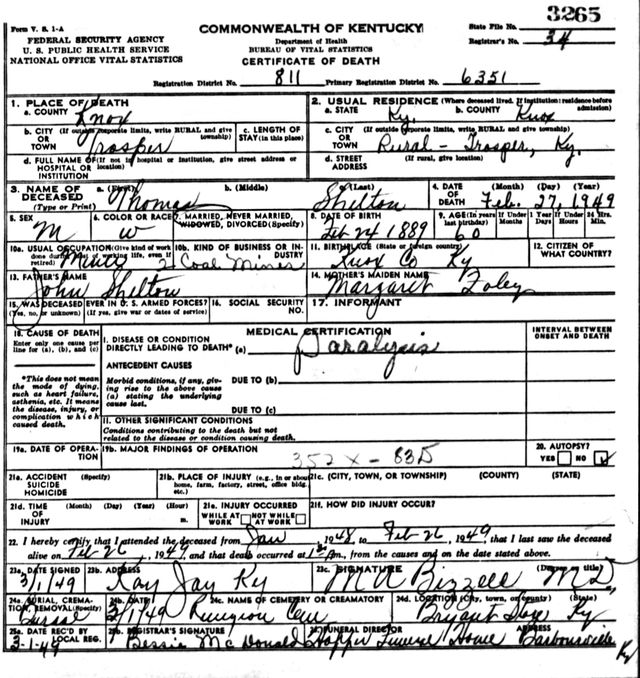 3265
Form V. S. 1-A
COMMONWEALTH OF KENTUCKY
State File No.
FEDERAL SECURITY AGENCY
Department of Health
Registrar's No. 34
U. S. PUBLIC HEALTH SERVICE
BUREAU OF VITAL STATISTICS
NATIONAL OFFICE VITAL STATISTICS
CERTIFICATE OF DEATH
Registration District No. 811 Primary Registration District No. 6351
1. PLACE OF DEATH
a. COUNTY Knox
2. USUAL RESIDENCE (Where deceased lived. If institution: residence before admission)
a. STATE Ky. b. COUNTY Knox
b. CITY (If outside corporate limits, write RURAL and give township) OR TOWN Trosper
c. LENGTH OF STAY (in this place)
c. CITY (If outside corporate limits, write RURAL and give township) OR TOWN Rural - Trosper, Ky.
d. FULL NAME OF (If not in hospital or institution, give street address or location) HOSPITAL OR INSTITUTION
d. STREET ADDRESS (If rural, give location)
3. NAME OF DECEASED (Type or Print) a. (First) Thomas b. (Middle) (Last) Shelton
4. DATE OF DEATH (Month) (Day) (Year) Feb. 27, 1949
5. SEX M
6. COLOR OR RACE W
7. MARRIED, NEVER MARRIED, WIDOWED, DIVORCED (Specify)
8. DATE OF BIRTH Feb 24 1889
9. AGE (In years last birthday) 60 If Under 1 Year Months Days If Under 24 Hrs. Hours Min.
10a. USUAL OCCUPATION (Give kind of work done during most of working life, even if retired)
10b. KIND OF BUSINESS OR INDUSTRY Coal Mines
11. BIRTHPLACE (State or foreign country) Knox Co Ky
12. CITIZEN OF WHAT COUNTRY?
13. FATHER'S NAME John Shelton
14. MOTHER'S MAIDEN NAME Margaret Foley
15. WAS DECEASED EVER IN U. S. ARMED FORCES? (Yes, no, or unknown) (If yes, give war or dates of service)
16. SOCIAL SECURITY NO.
17. INFORMANT
18. CAUSE OF DEATH
Enter only one cause per line for (a), (b), and (c)
MEDICAL CERTIFICATION
INTERVAL BETWEEN ONSET AND DEATH
I. DISEASE OR CONDITION DIRECTLY LEADING TO DEATH* (a) Paralysis
*This does not mean the mode of dying, such as heart failure, asthenia, etc. It means the disease, injury, or complication which caused death.
ANTECEDENT CAUSES
Morbid conditions, if any, giving rise to the above cause (a) stating the underlying cause last.
DUE TO (b)
DUE TO (c)
II. OTHER SIGNIFICANT CONDITIONS
Conditions contributing to the death but not related to the disease or condition causing death.
19a. DATE OF OPERATION
19b. MAJOR FINDINGS OF OPERATION
352X - 83D
20. AUTOPSY? YES NO
21a. ACCIDENT SUICIDE HOMICIDE (Specify)
21b. PLACE OF INJURY (e.g., in or about home, farm, factory, street, office bldg. etc.)
21c. (CITY, TOWN, OR TOWNSHIP) (COUNTY) (STATE)
21d. TIME OF INJURY (Month) (Day) (Year) (Hour) m.
21e. INJURY OCCURRED WHILE AT WORK NOT WHILE AT WORK
21f. HOW DID INJURY OCCUR?
22. I hereby certify that I attended the deceased from Jan, 1948, to Feb 26, 1949, that I last saw the deceased
alive on Feb 26, 1949, and that death occurred at m., from the causes and on the date stated above.
23a. DATE SIGNED 3/1/49
23b. ADDRESS Kay Jay Ky
23c. SIGNATURE M A Bizzell MD
24a. BURIAL, CREMATION, REMOVAL (Specify) Burial
24b. DATE 3/1/49
24c. NAME OF CEMETERY OR CREAMATORY Cem
24d. LOCATION (City, town, or county) (State) Bryant Store Ky
25a. DATE REC'D BY LOCAL REG. 3-1-49
25b. REGISTRAR'S SIGNATURE Bessie McDonald
FUNERAL DIRECTOR Hopper Funeral Home
ADDRESS Barbourville Ky